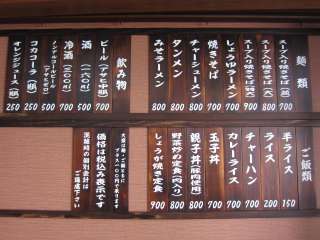 麺類
スープ入り焼そば
スープ入り焼そば
スープ入り焼そば
しょうゆラーメン 700
焼きそば 700
チャーシューメン 800
タンメン 800
みそラーメン 800
飲み物
ビール 700
酒
冷酒 700
ノンアルコールビール 500
コカコーラ 250
オレンジジュース 250
ご飯類
半ライス 150
ライス 200
チャーハン 700
カレーライス 700
玉子丼 700
親子丼 800
野菜炒め定食(肉入り) 800
しょうが焼き定食 900
価格は税込み表示です
混雑時の個別会計は
ご遠慮下さい